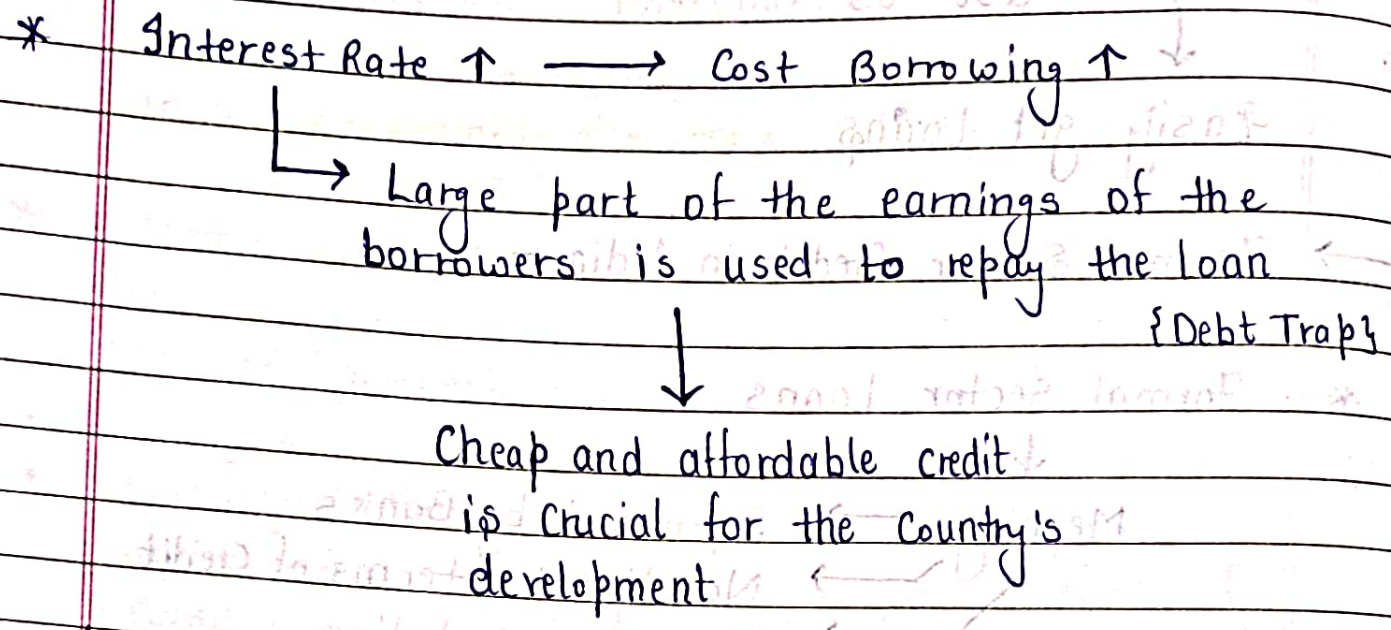 * Interest Rate ↑ → Cost Borrowing ↑
Large part of the earnings of the
borrowers is used to repay the loan
{Debt Trap}
Cheap and affordable credit
is crucial for the Country's
development